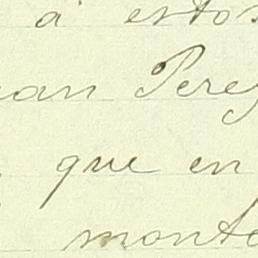 á estos
uan Perez
que en
monte